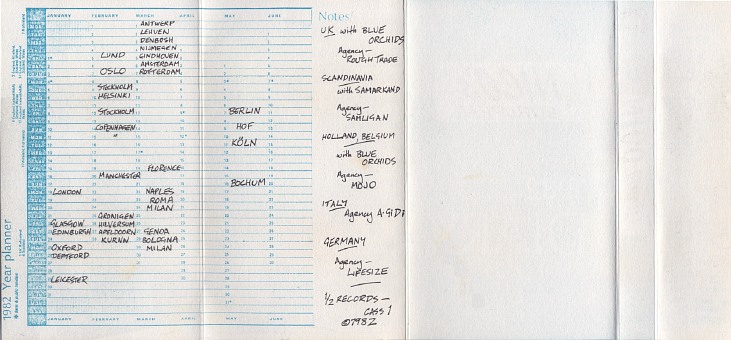 JANUARY FEBRUARY MARCH APRIL MAY JUNE
ANTWERP
LEHUEN
DENBOSH
NIJMEGEN
LUND EINDHOVEN
AMSTERDAM
OSLO ROTTERDAM
STOCKHOLM
HELSINKI
STOCKHOLM BERLIN
COPENHAGEN HOF
"
KÖLN
FLORENCE
MANCHESTER
BOCHUM
LONDON NAPLES
ROMA
MILAN
GRONIGEN
GLASGOW HILVERSUM
EDINBURGH APELDOORN GENOA
KURNN BOLOGINA
OXFORD MILAN
DEPTFORD
LEICESTER
JANUARY FEBRUARY MARCH APRIL MAY JUNE
1982 Year planner
Notes
UK with BLUE
ORCHIDS
Agency—
ROUGH TRADE
SCANDINAVIA
with SAMARKAND
Agency—
SAMLIGAN
HOLLAND, BELGIUM
with BLUE
ORCHIDS
Agency—
MOJO
ITALY
Agency A. GIDI
GERMANY
Agency—
LIFESIZE
1/2 RECORDS—
CASS 1
©1982